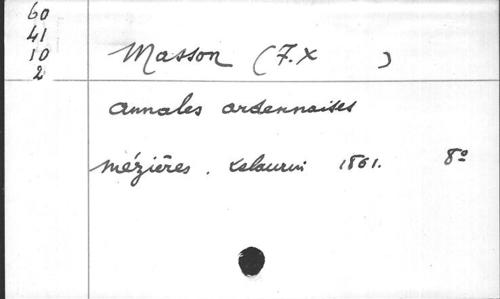 60
41
10
2
Masson (F.X )
Annales ardennaises
Mézières. Lelaurin 1861. 8º